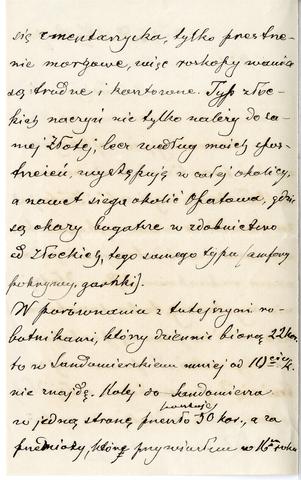 się cmentarzyska, tylko przestrze-
nie morgowe, więc rozkopywania
są trudne i kosztowne. Typ złoc-
kich naczyń nie tylko należy do sa-
mej Złotej, lecz według moich spos-
trzeżeń, występują w całej okolicy,
a nawet sięga okolic Opatowa, gdzie
są okazy bogatsze w zdobnictwo
od złockich, tego samego typu (amfory
pokrywy, garnki).
W porównaniu z tutejszymi ro-
botnikami, którzy dziennie biorą 22 kor.
to w Sandomierskiem mniej od 10
nie znajdę. Kolej do Sandomierza
w jedną stronę 50 kor., a za
przedmioty, które przywiozłem w